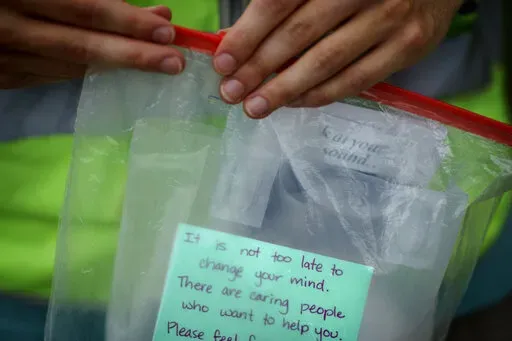 sound.
It is not too late to
change your mind.
There are caring people
who want to help you.
Please feel